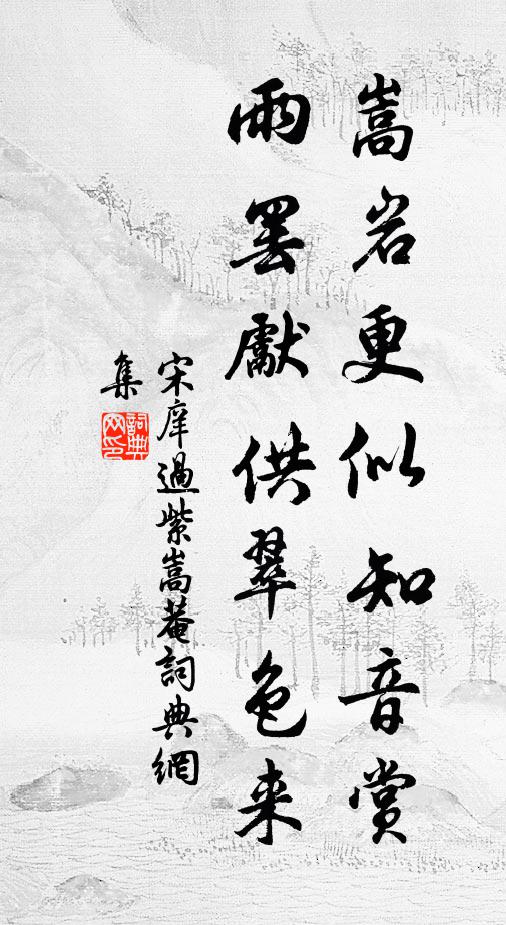 嵩岩更似知音赏
雨罢獻供翠色来
宋庠過紫嵩菴詞典網
集
詞典网印